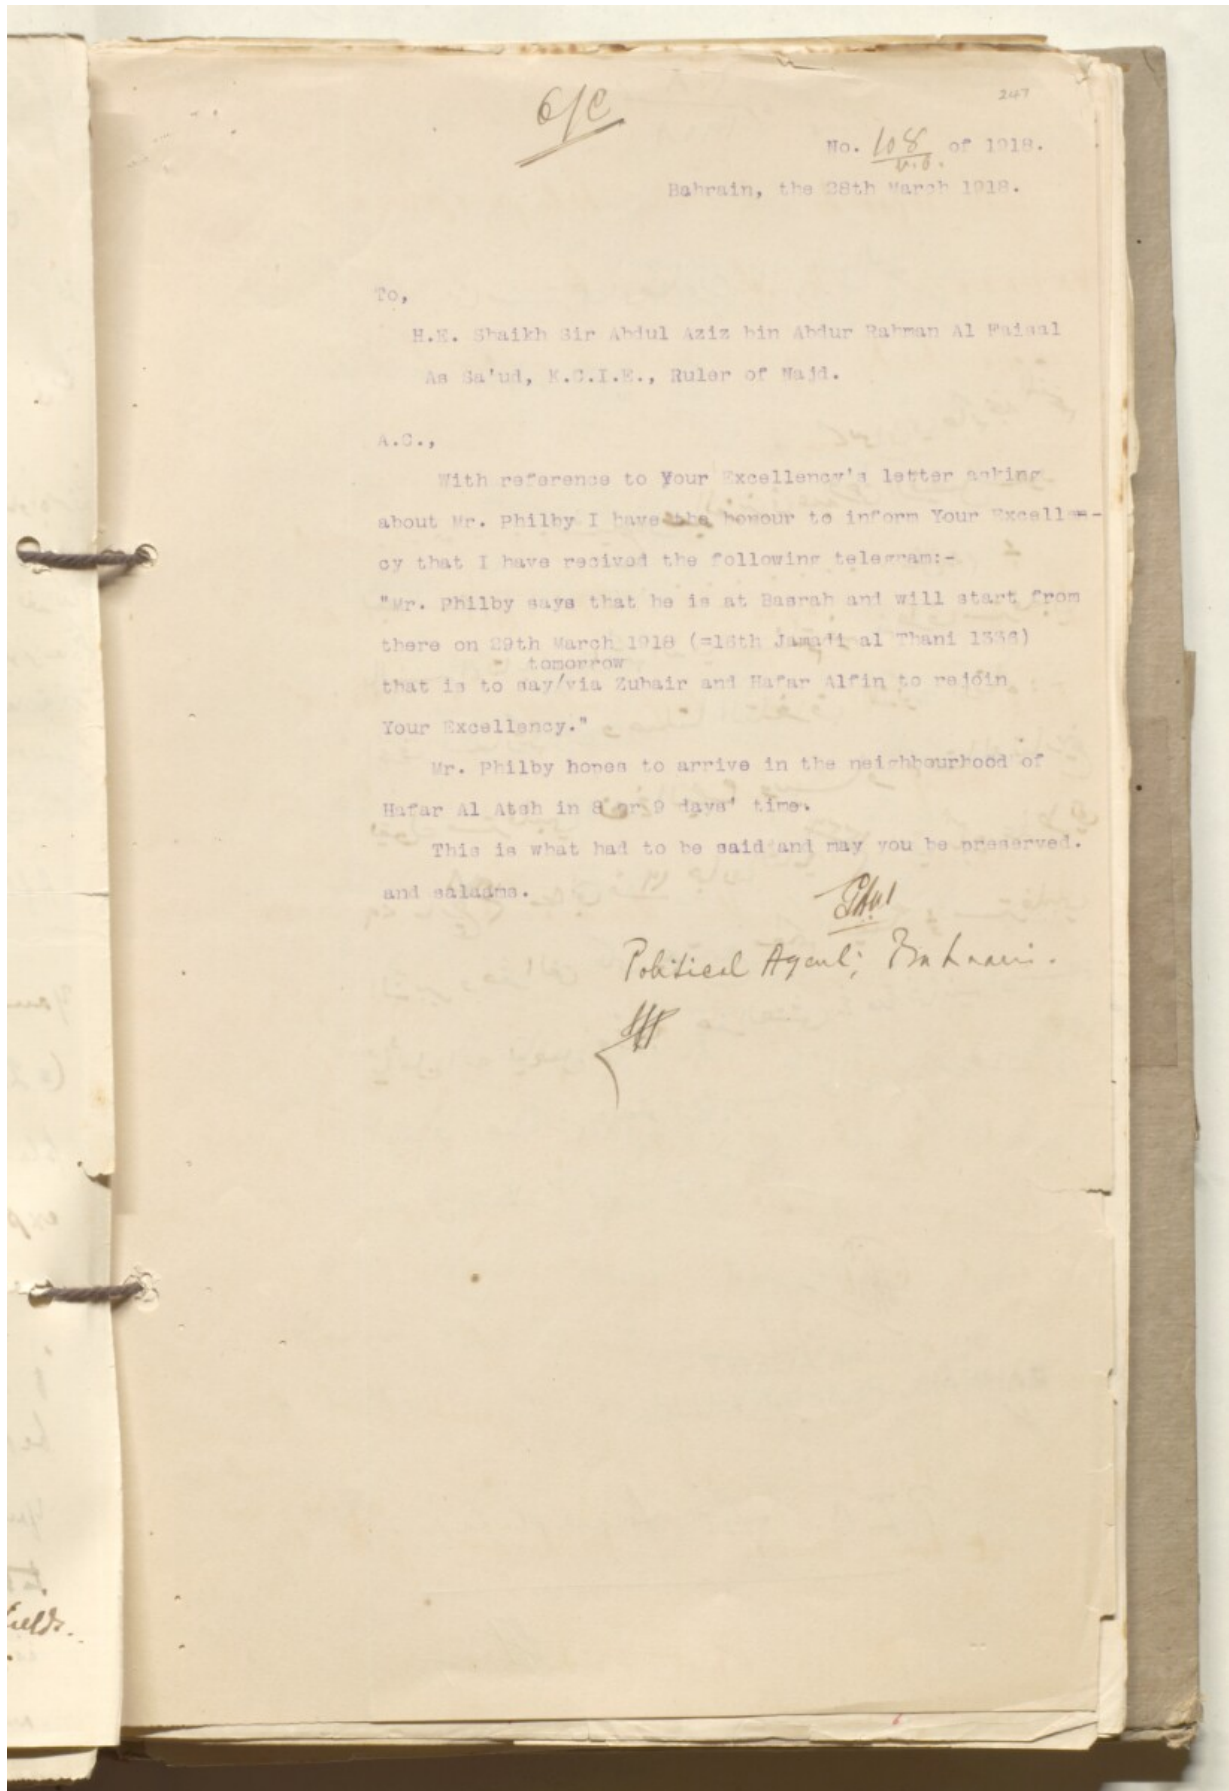 6/C
247
No. 108 of 1918.
Bahrain, the 28th March 1918.
To,
H.E. Shaikh Sir Abdul Aziz bin Abdur Rahman Al Faisal
As Sa'ud, K.C.I.E., Ruler of Najd.
A.C.,
With reference to Your Excellency's letter asking
about Mr. Philby I have the honour to inform Your Excellen-
cy that I have recived the following telegram:-
"Mr. Philby says that he is at Basrah and will start from
there on 29th March 1918 (=16th Jamadi al Thani 1336)
tomorrow
that is to say/via Zubair and Hafar Alfin to rejoin
Your Excellency."
Mr. Philby hopes to arrive in the neighbourhood of
Hafar Al Atsh in 8 or 9 days' time.
This is what had to be said and may you be preserved.
and salaams.
Political Agent, Bahrain.